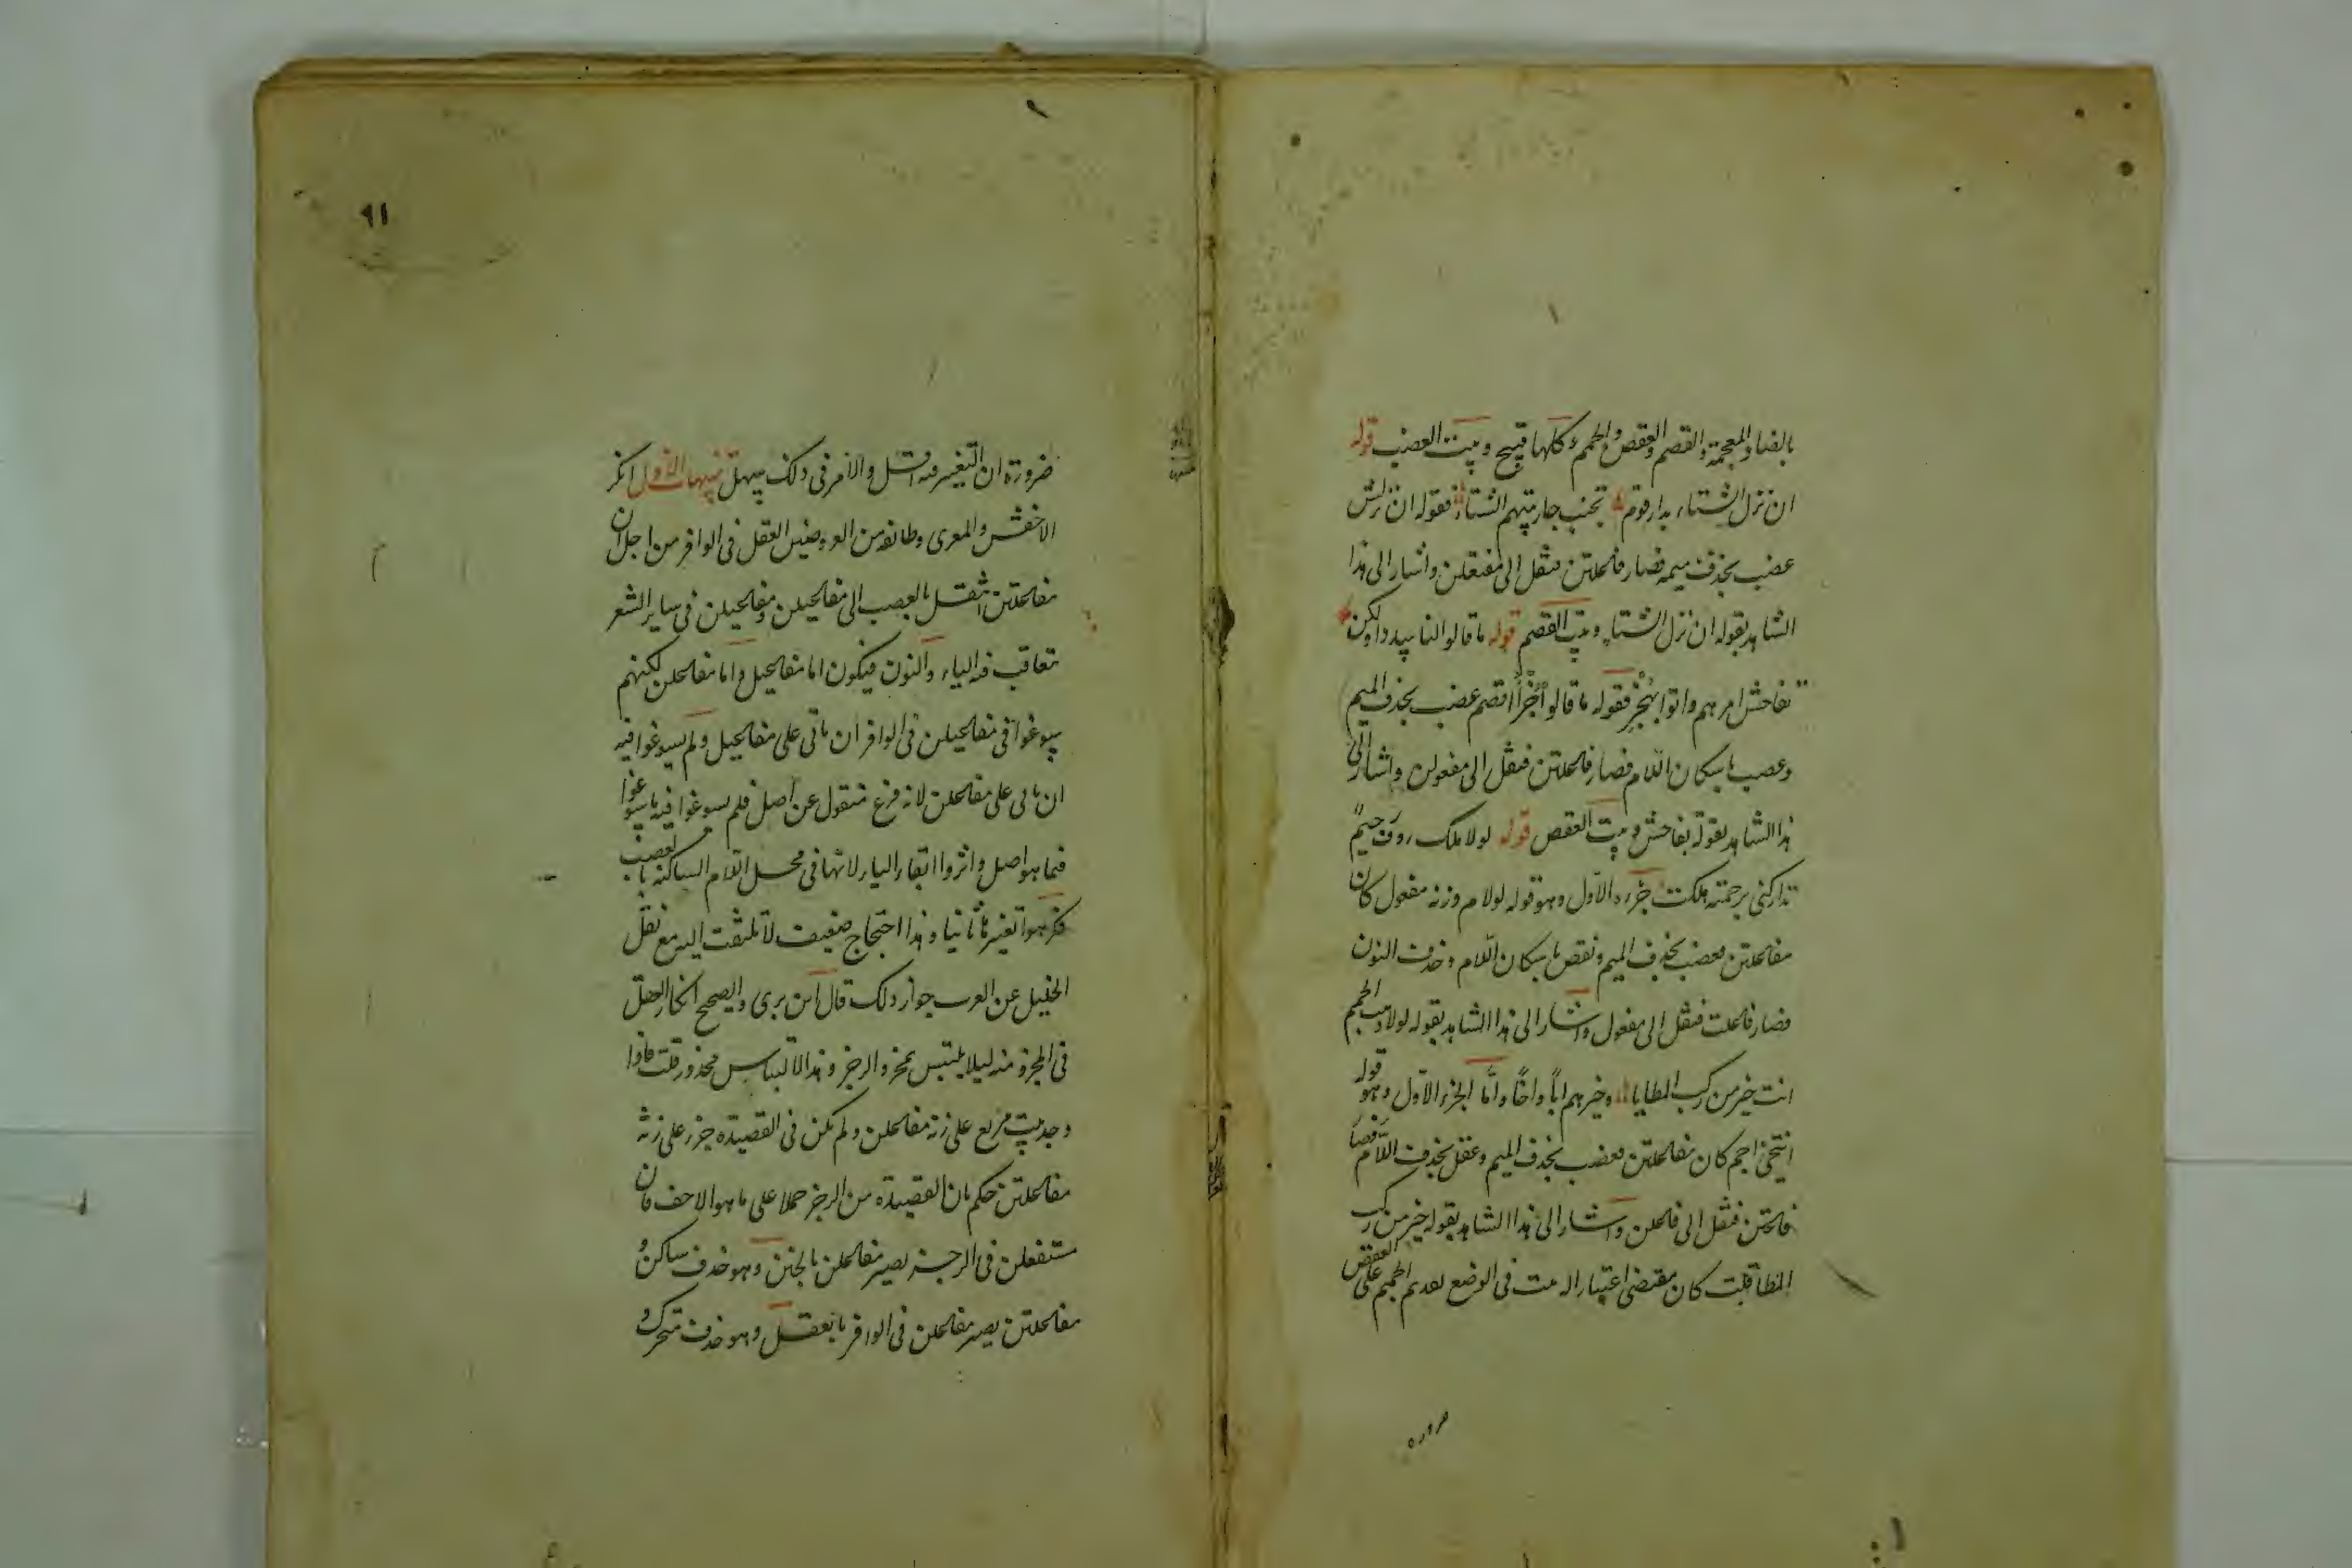 بالضاد المعجمة والقصم والعقص والجمم وكلها قبيح وبيت العضب قوله
ان نزل الشتاء بدار قوم تجنب جار بيتهم الشتاء فقوله ان نزلش
عضب بحذف ميمه فصار فاعلتن فنقل الى مفتعلن واشار الى هذا
الشاهد بقوله ان نزل الشتاء وبيت القصم قوله ما قالوا لنا سددا ولكن
تفاحش امرهم واتوا بهجر فقوله ما قالوا اقصم عضب بحذف الميم
وعصب باسكان اللام فصار فاعلتن فنقل الى مفعولن واشار الى
هذا الشاهد بقوله تفاحش وبيت العقص قوله لولا ملك رؤوف رحيم
تداركنى برحمته هلكت جزءه الاول وهو قوله لولام وزنه مفعول كان
مفاعلتن فعضب بحذف الميم ونقص باسكان اللام وحذف النون
فصار فاعلت فنقل الى مفعول واشار الى هذا الشاهد بقوله لولا وبيت الجمم
انت خير من ركب المطايا وخيرهم اباً واخاً واماً الجزء الاول وهو قوله
انتخى اجم كان مفاعلتن فعضب بحذف الميم وعقل بحذف اللام فصار
فاعتن فنقل الى فاعلن واشار الى هذا الشاهد بقوله خير من ركب
المطا قلت كان مقتضى اعتبار المت فى الوضع تقديم الجمم على العقص
ضروره
٩١
ضرورة ان التغيير فيه اقل والامر فى ذلك سهل تنبيهات الاول انكر
الاخفش والمعرى وطائفة من العروضيين العقل فى الوافر من اجل ان
مفاعلتن تنقل بالعصب الى مفاعيلن ومفاعيلن فى ساير الشعر
تعاقب فيه الياء والنون فيكون اما مفاعيل واما مفاعلن لكنهم
سوغوا فى مفاعيلن فى الوافر ان ياتى على مفاعيل ولم يسوغوا فيه
ان ياتى على مفاعلن لانه فرع منقول عن اصل فلم يسوغوا فيه ما سوغوا
فيما هو اصل واثروا ابقاء الياء لانها فى محل اللام الساكنة بالعصب
فكرهوا تغييرها ثانيا وهذا احتجاج ضعيف لا تلتفت اليه مع نقل
الخليل عن العرب جواز ذلك قال ابن برى والصحيح انكار العقل
فى المجزو منه ليلا يلتبس بمجزو الرجز وهذا الالتباس محذور قلت فاذا
وجد بيت مربع على زنة مفاعلن ولم يكن فى القصيدة جزء على زنة
مفاعلتن حكم بان القصيدة من الرجز حملا على ما هو الاخف فان
مستفعلن فى الرجز يصير مفاعلن بالخبن وهو حذف ساكن و
مفاعلتن يصير مفاعلن فى الوافر بالعقل وهو حذف متحرك و